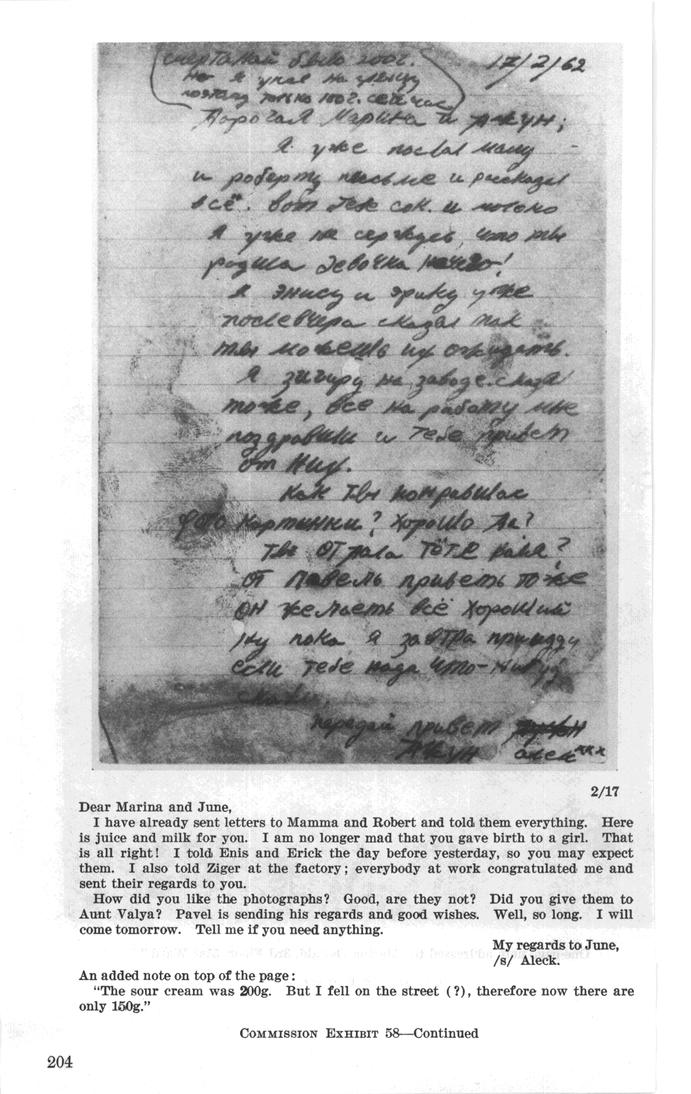 было 200г. 17/2/62
но я упал на улицу
поэтому только 100г. сейчас
Дорогая Марина и Джун;
Я уже послал маму
и роберту письме и рассказал
всё. вот тебе сок. и молоко
я уже не что ты
родила девочка ничего!
я энису и эрику уже
послевчера сказал так
ты можешь их ожидать.
я зигиру на заводе. сказал
тоже, все на работу мне
поздравили и тебе привет
от них.
Как ты понравилас
фото картинки? Хорошо да?
ты отдала тоте валя?
от Павель приветь тоже
он желаеть всё хороший
ну пока я завтра прииду
если тебе нада что-нибудь
передай привет
Джун алек xxx
2/17
Dear Marina and June,
I have already sent letters to Mamma and Robert and told them everything. Here
is juice and milk for you. I am no longer mad that you gave birth to a girl. That
is all right! I told Enis and Erick the day before yesterday, so you may expect
them. I also told Ziger at the factory; everybody at work congratulated me and
sent their regards to you.
How did you like the photographs? Good, are they not? Did you give them to
Aunt Valya? Pavel is sending his regards and good wishes. Well, so long. I will
come tomorrow. Tell me if you need anything.
My regards to June,
/s/ Aleck.
An added note on top of the page:
"The sour cream was 200g. But I fell on the street (?), therefore now there are
only 150g."
COMMISSION EXHIBIT 58—Continued
204